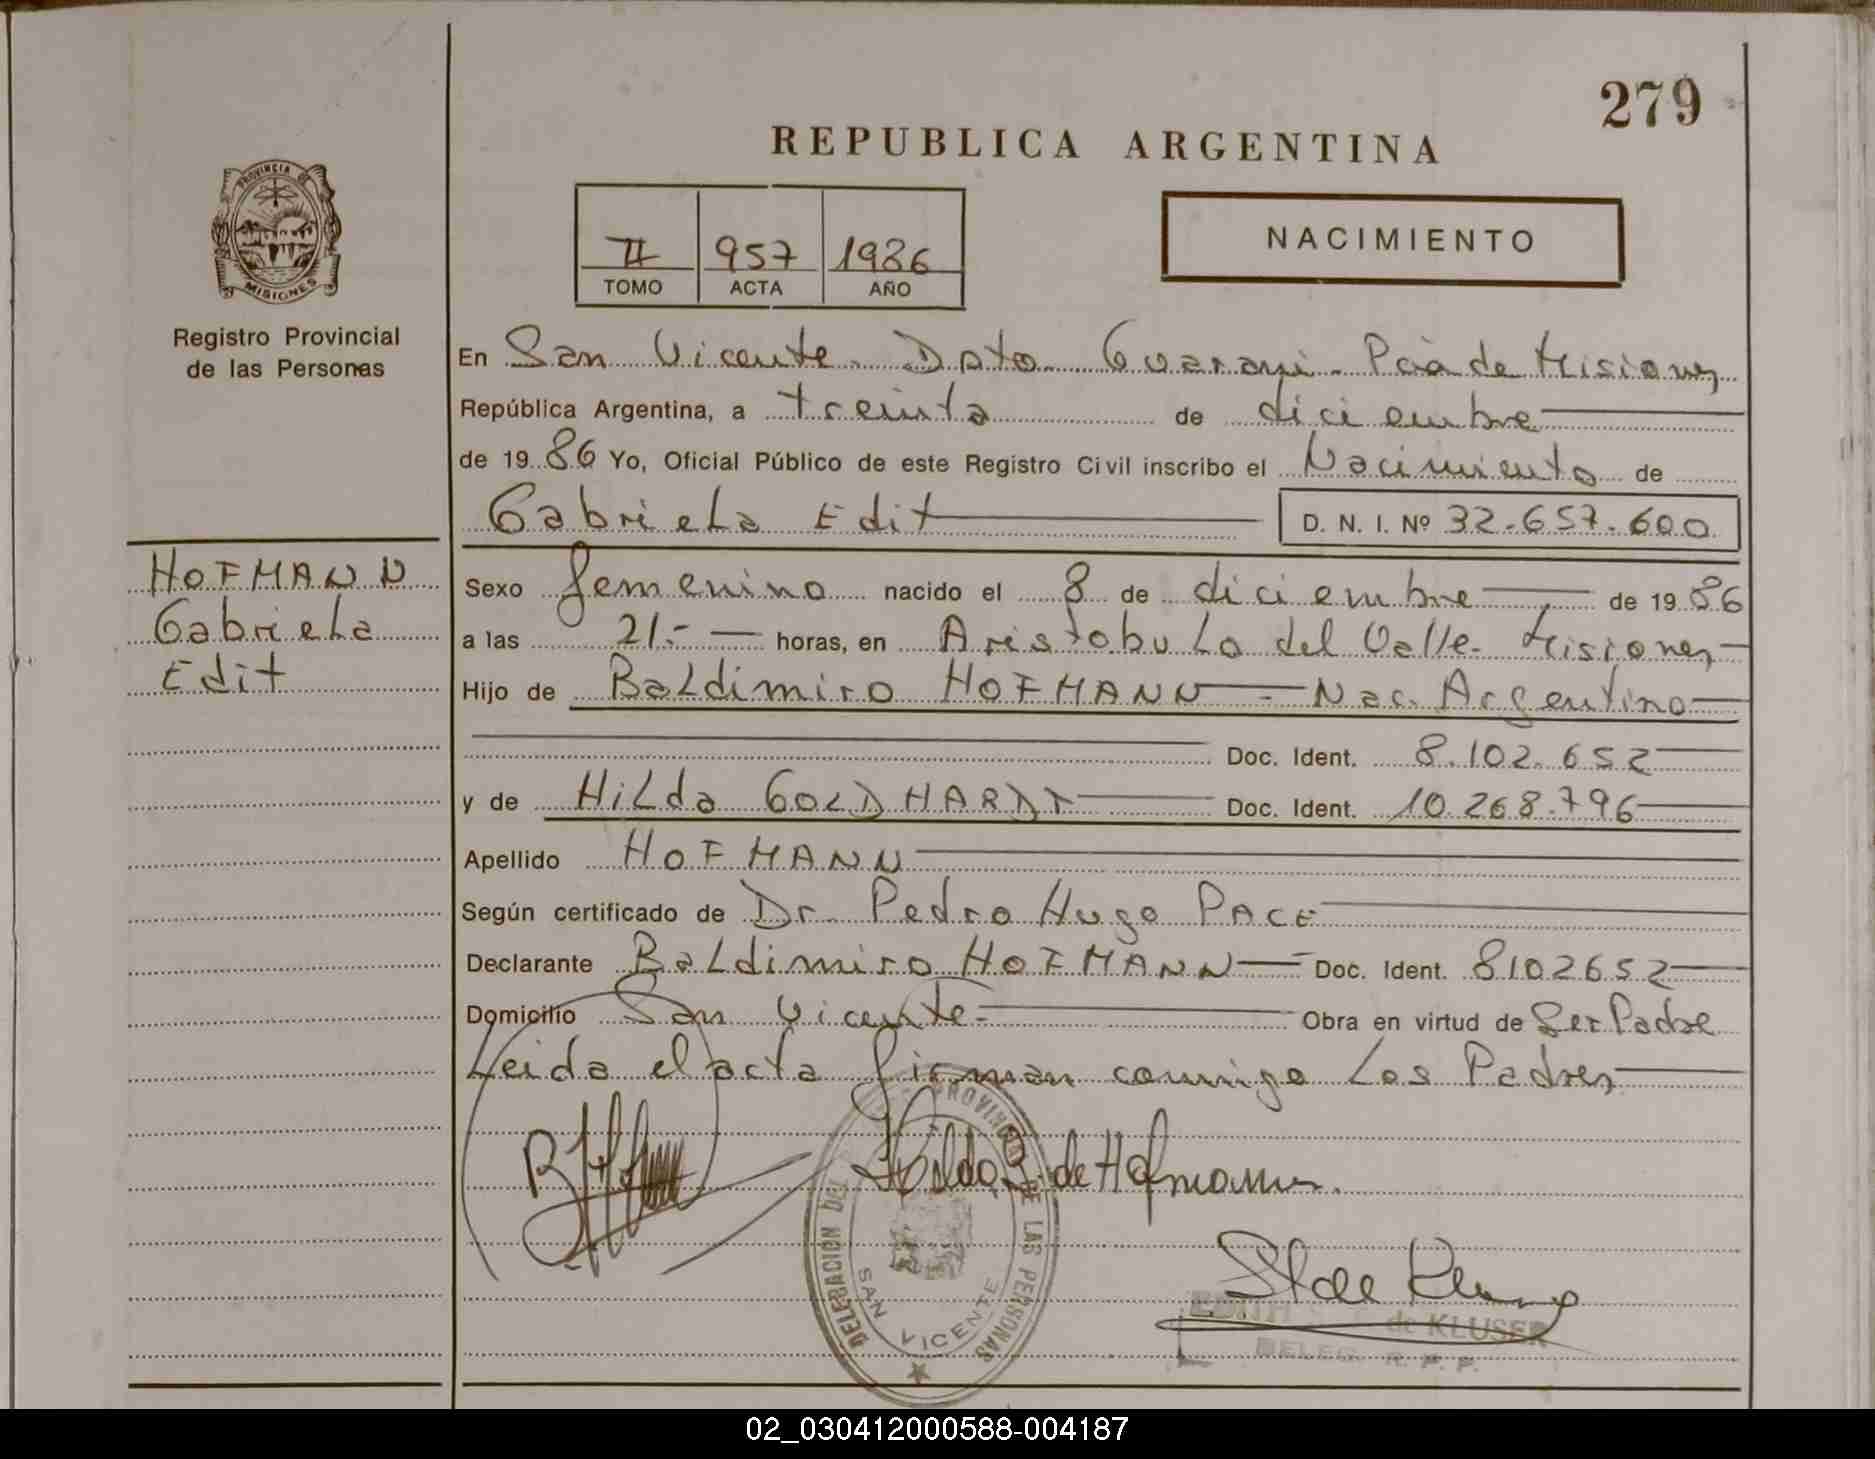 279
REPUBLICA ARGENTINA
II 957 1986
TOMO ACTA AÑO
NACIMIENTO
PROVINCIA DE
MISIONES
Registro Provincial
de las Personas
HOFMANN
Gabriela
Edit
En San Vicente Dpto Guarani Pcia de Misiones
República Argentina, a treinta de diciembre
de 1986 Yo, Oficial Público de este Registro Civil inscribo el Nacimiento de
Gabriela Edit D. N. I. Nº 32.657.600
Sexo femenino nacido el 8 de diciembre de 1986
a las 21.- horas, en Aristobulo del Valle Misiones
Hijo de Baldimiro HOFMANN - Nac. Argentino
Doc. Ident. 8.102.652
y de Hilda GOLDHARDT Doc. Ident. 10.268.796
Apellido HOFMANN
Según certificado de Dr. Pedro Hugo PACE
Declarante Baldimiro HOFMANN Doc. Ident. 8102652
Domicilio San Vicente Obra en virtud de Ser Padre
Leida el acta firman conmigo Los Padres
Hilda G. de Hofmann.
DELEGACION DEL PROVINCIAL DE LAS PERSONAS
SAN VICENTE
EDITH de KLUSER
DELEG. R. P. P.
02_030412000588-004187